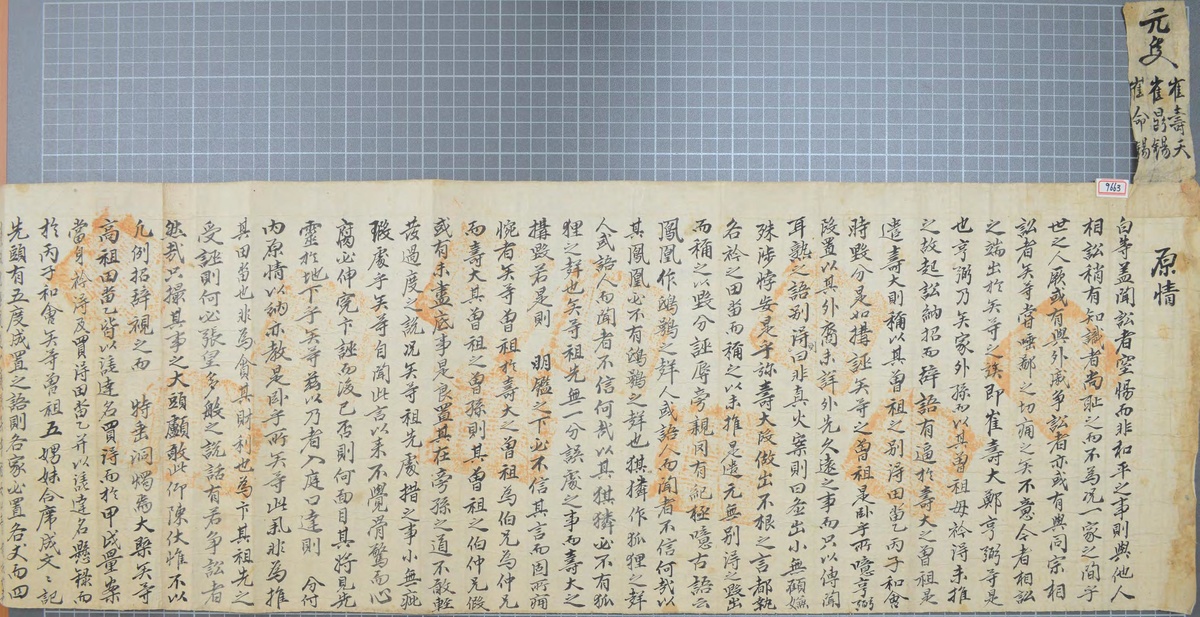 元隻
崔壽天
崔昌錫
崔命錫
9663
原情
白等盖聞訟者窒惕而非和平之事則與他人
相訟稍有知識者尙恥之而不爲况一家之間乎
世之人厥或有與外戚爭訟者亦或有與同宗相
訟者矣等嘗唾鄙之切痛之矣不意今者相訟
之端出於矣等之族即崔壽大鄭亨弼等是
也亨弼乃矣家外孫而以其曾祖母衿得未推
之故起訟納招而辭語有逼於壽大之曾祖是
遣壽大則稱以其曾祖之別得田畓乙丙子和會
時毁分是如搆誣矣等之曾祖是卧乎所噫亨弼
段置以其外裔未詳外先久遠之事而只以傳聞
耳熟之語別得曰非真火案則曰虛出小無顧嫌
殊涉悖妄是乎㫆壽大段做出不根之言都執
各衿之田畓而稱之以未推是遣元無別得之毁出
而稱之以毁分誣辱旁親罔有紀極噫古語云
鳳凰作鴟鴞之群人或語人而聞者不信何哉以
其鳳凰必不有鴟鴞之群也猉獜作狐狸之群
人或語人而聞者不信何哉以其猉獜必不有狐
狸之群也矣等祖先無一分誤處之事而壽大之
搆毁若是則 明鑑之下必不信其言而固所痛
惋者矣等曾祖於壽大之曾祖爲伯兄爲仲兄
而壽大其曾祖之曾孫則其曾祖之伯仲兄假
或有未盡底事是良置其在旁孫之道不敢輕
發過度之說况矣等祖先處措之事小無疵
瑕處乎矣等自聞此言以来不覺骨驚而心
腐必伸寃卞誣而後已否則何面目其將見先
靈於地下乎矣等玆以乃者入庭口達則 分付
內原情以納亦教是卧乎所矣等此 非爲推
其田畓也非爲貪其財利也爲卞其祖先之
受誣則何必張皇多般之說話有若爭訟者
然哉只撮其事之大頭顱敢此仰陳伏惟不以
凡例招辭視之而 特垂洞燭焉大槩矣等
高祖田畓乙皆以 達名買得而於甲戌量案
當身衿得及買得田畓乙并以 達名懸録而
於丙子和會矣等曾祖五娚妹合席成文〻記
先頭有五度成置之語則各家必置各文而四